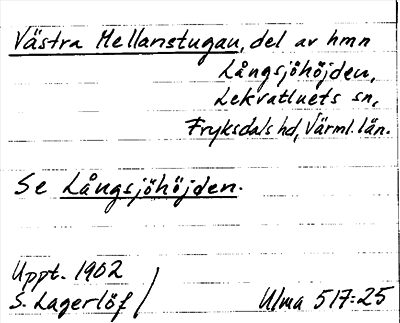 Västra Mellanstugan, del av hmn
Långsjöhöjden,
Lekvattnets sn,
Fryksdals hd, Värml. län.
Se Långsjöhöjden.
Uppt. 1902
S. Lagerlöf
Ulma 517:25